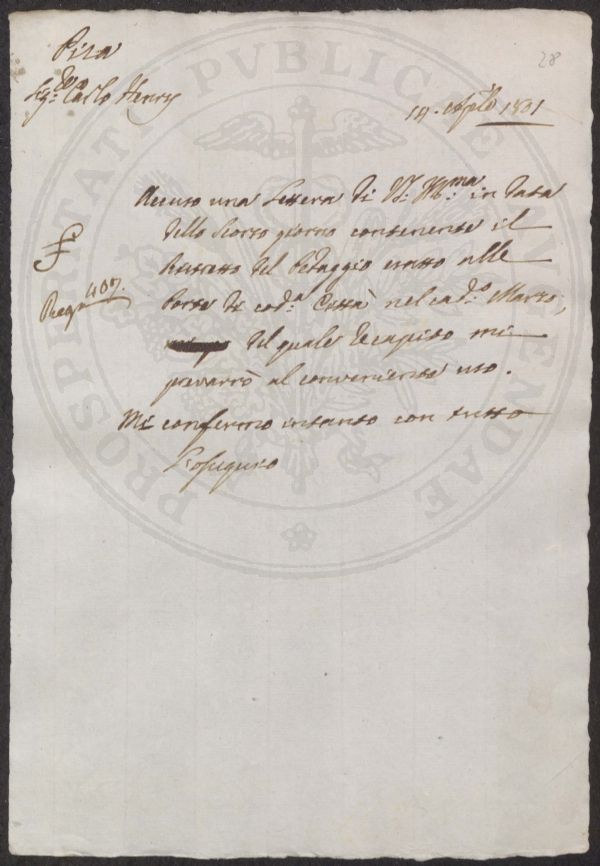 28
Pisa
Sig.re Carlo Henry
14. Aple 1801
Accuso una Lettera di V.S. Ill.ma in data
dello scorso giorno contenente il
Ristretto del Pedaggio esatto alle
Porte di cod.a Città nel cad.o Marzo,
del quale recapito mi
prevarrò al conveniente uso.
Mi confermo intanto con tutto
l'ossequio
407.
PROSPERITATI PUBLICAE AUGENDAE